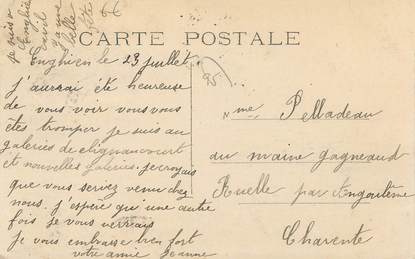 je suis a
Enghien
CARTE POSTALE
Enghien le 23 juillet
j'aurrai été heureuse
de vous voir vous vous
êtes tromper je suis au
galeries de clignancourt
et nouvelles galeries. je croyais
que vous servez venu chez
nous. j'espère qu'une autre
fois je vous verrais
je vous embrasse bien fort
votre amie Jeanne
95
Mme Pelladeau
au maine gagneaud
Ruelle par Angoulême
Charente